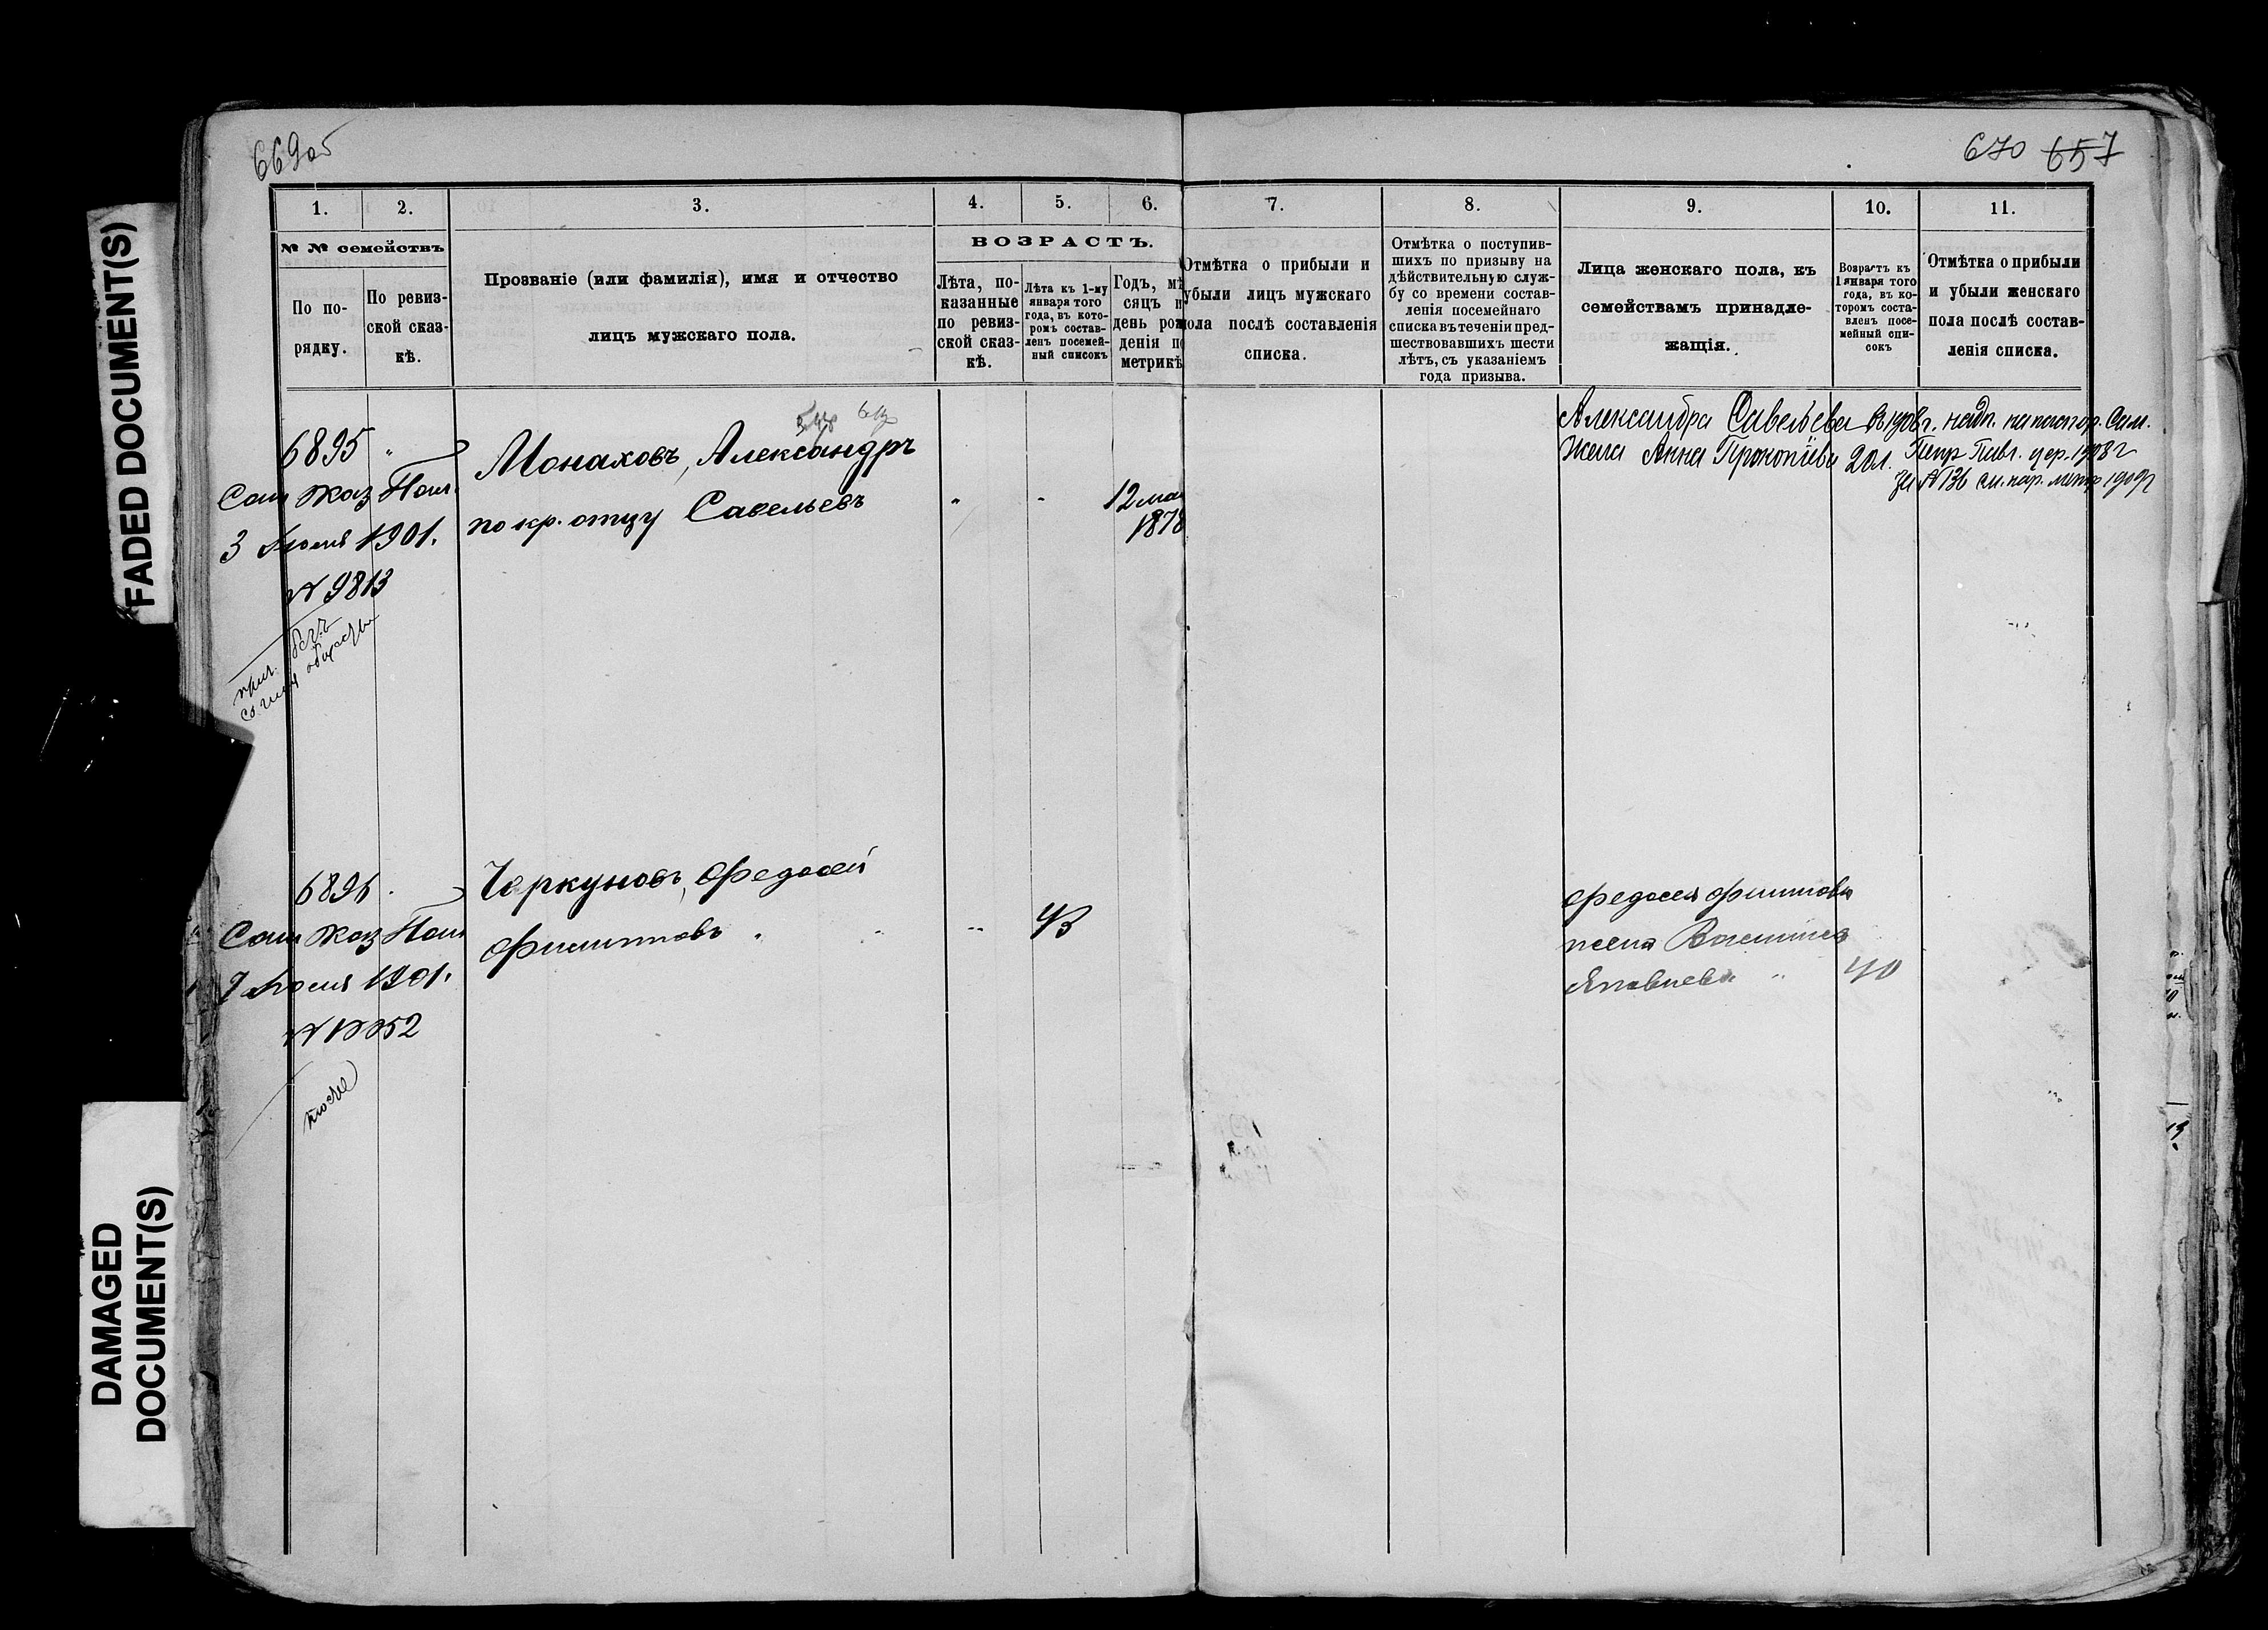 669об
670 657
FADED DOCUMENT(S)
DAMAGED
DOCUMENT(S)
1.
2.
3.
4.
5.
6.
7.
8.
9.
10.
11.
№ № семействъ
По по-
рядку.
По ревиз-
ской сказ-
кѣ.
Прозваніе (или фамилія), имя и отчество
лицъ мужскаго пола.
ВОЗРАСТЪ.
Лѣта, по-
казанные
по ревиз-
ской сказ-
кѣ.
Лѣта къ 1-му
января того
года, въ кото-
ромъ состав-
ленъ посемей-
ный списокъ
Годъ, мѣ
сяцъ и
день рож
денія по
метрикѣ
Отмѣтка о прибыли и
убыли лицъ мужскаго
пола послѣ составленія
списка.
Отмѣтка о поступив-
шихъ по призыву на
дѣйствительную служ-
бу со времени состав-
ленія посемейнаго
списка въ теченіи пред-
шествовавшихъ шести
лѣтъ, съ указаніемъ
года призыва.
Лица женскаго пола, къ
семействамъ принадле-
жащія.
Возрастъ къ
1 января того
года, въ ко-
торомъ соста-
вленъ посе-
мейный спи-
сокъ
Отмѣтка о прибыли
и убыли женскаго
пола послѣ состав-
ленія списка.
6895 "
Сам Каз Пал.
3 Іюля 1901.
№ 9813
прич. безъ
согласія общества
Монаховъ, Александръ
по кр. отцу Савельевъ
" "
12 мая
1878
Александра Савельева въ 1908 г. надп. паспор. Сам.
жена Анна Прокопіева 20 л. Петр Павл. цер. 1908 г
за № 136 см. 1909
6896 "
Сам Каз Пал
7 Іюля 1901.
№ 10052
тоже
Черкуновъ, Федосей
Филипповъ " "
" 43
Федосея Филиппова
жена Василиса
Яковлева " 40